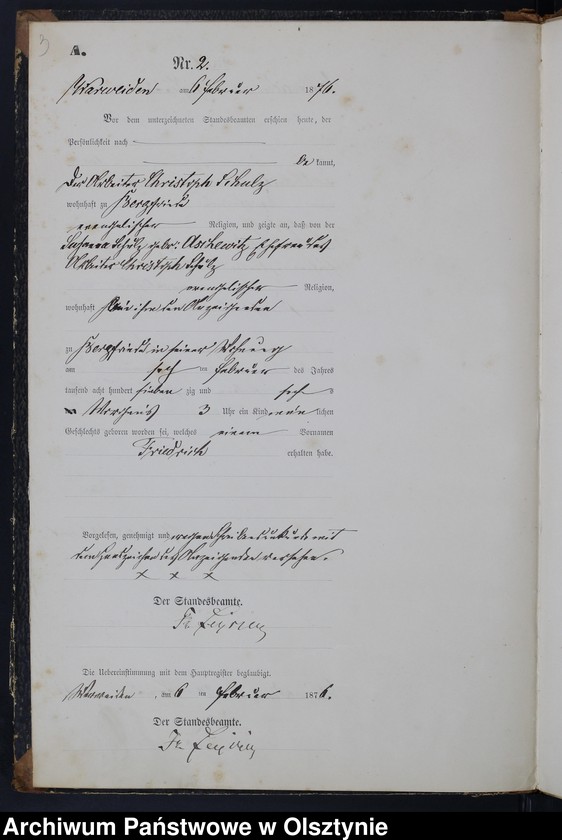 3
A.
Nr. 2.
Warweiden am 6 Februar 1876.
Vor dem unterzeichneten Standesbeamten erschien heute, der
Persönlichkeit nach
be kannt,
der Arbeiter Christoph Schulz
wohnhaft zu Bergfriede
evangelischer Religion, und zeigte an, daß von der
Schulz geb. Ehefrau des
Arbeiter Christoph Schulz
evangelischer Religion,
wohnhaft bei ihm dem Anzeigenden
zu Bergfriede in seiner Wohnung
am sech ten Februar des Jahres
tausend acht hundert sieben zig und sech s
Morgens 3 Uhr ein Kind männ lichen
Geschlechts geboren worden sei, welches einen Vornamen
Friedrich erhalten habe.
Vorgelesen, genehmigt und wegen Schreibensunkunde mit
dem Handzeichen des Anzeigenden versehen.
x x x
Der Standesbeamte.
Die Uebereinstimmung mit dem Hauptregister beglaubigt.
Warweiden, am 6 ten Februar 1876.
Der Standesbeamte.
Archiwum Państwowe w Olsztynie